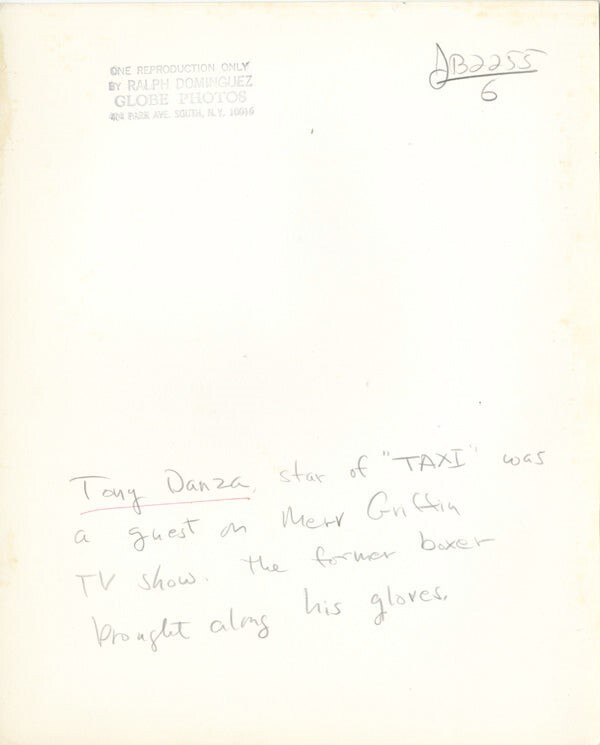 ONE REPRODUCTION ONLY
BY RALPH DOMINGUEZ
GLOBE PHOTOS
404 PARK AVE. SOUTH, N.Y. 10016
DB2255
6
Tony Danza, star of "TAXI" was
a guest on Merv Griffin
TV show. The former boxer
brought along his gloves.